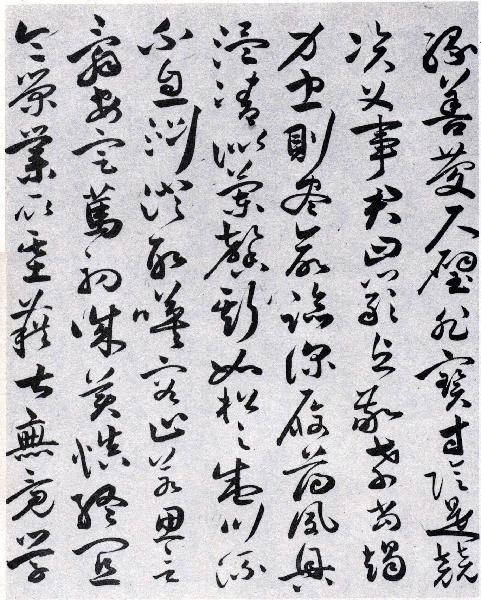 緣善慶尺璧非寶寸陰是競
資父事君曰嚴與敬孝當竭
力忠則盡命臨深履薄夙興
溫清似蘭馨斯如松之盛川流
不息淵澄取暎容止若思言
辭安定篤初誠美慎終宜
令榮業所基藉甚無竟學